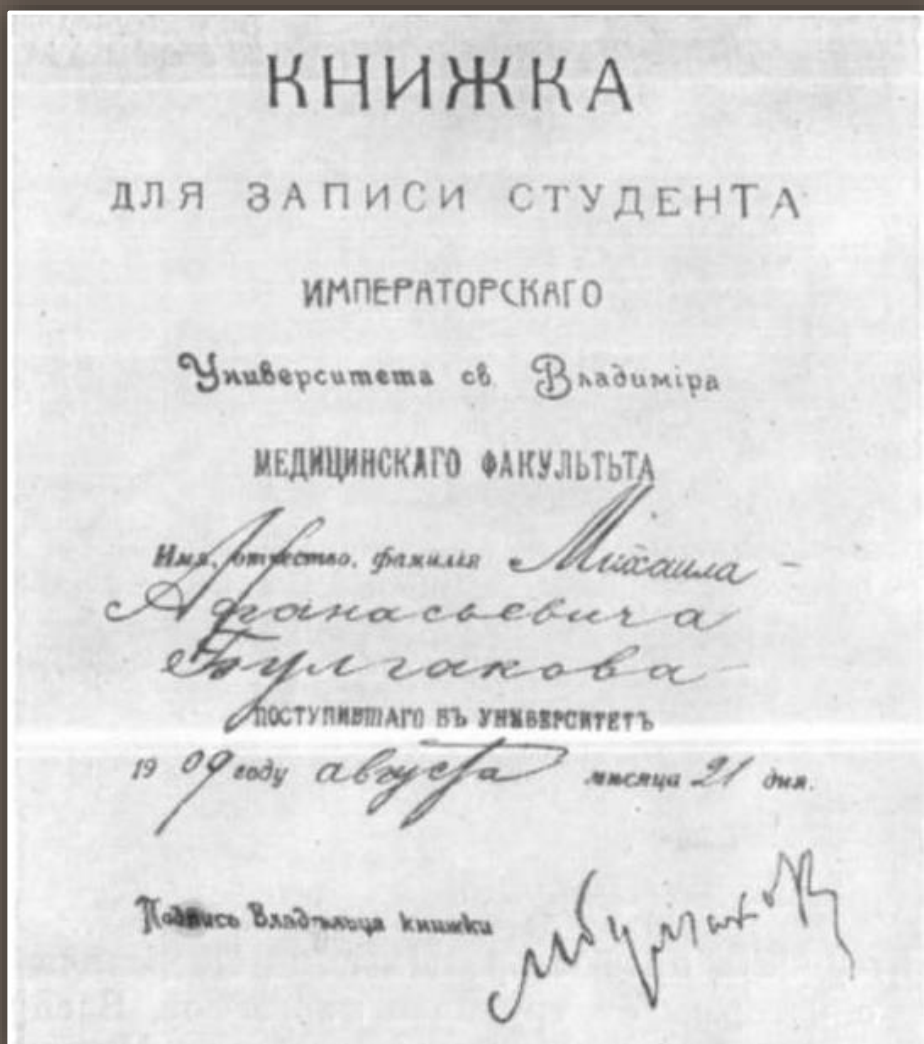 КНИЖКА
ДЛЯ ЗАПИСИ СТУДЕНТА
ИМПЕРАТОРСКАГО
Университета св. Владиміра
МЕДИЦИНСКАГО ФАКУЛЬТЬТА
Имя, отчество, фамилія Михаила
Афанасьевича
Булгакова
ПОСТУПИВШАГО ВЪ УНИВЕРСИТЕТЪ
1909 году августа мѣсяца 21 дня.
Подпись Владѣльца книжки МБулгаковъ